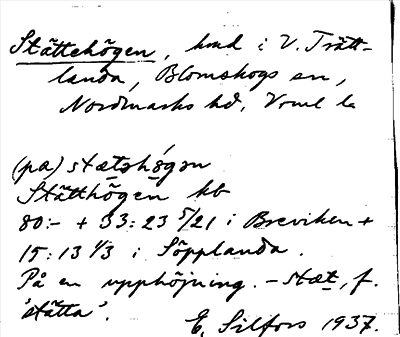 Stättehögen, hmd i V. Trätt-
landa, Blomskogs sn,
Nordmarks hd, Vrml l.
(pa) stætshögen
Stätthögen kb
80:- + 33:23 5/21 i Breviken +
15:13 1/3 i Söpplanda.
På en upphöjning. - stæt, f.
'stätta'.
E. Silfors 1937.